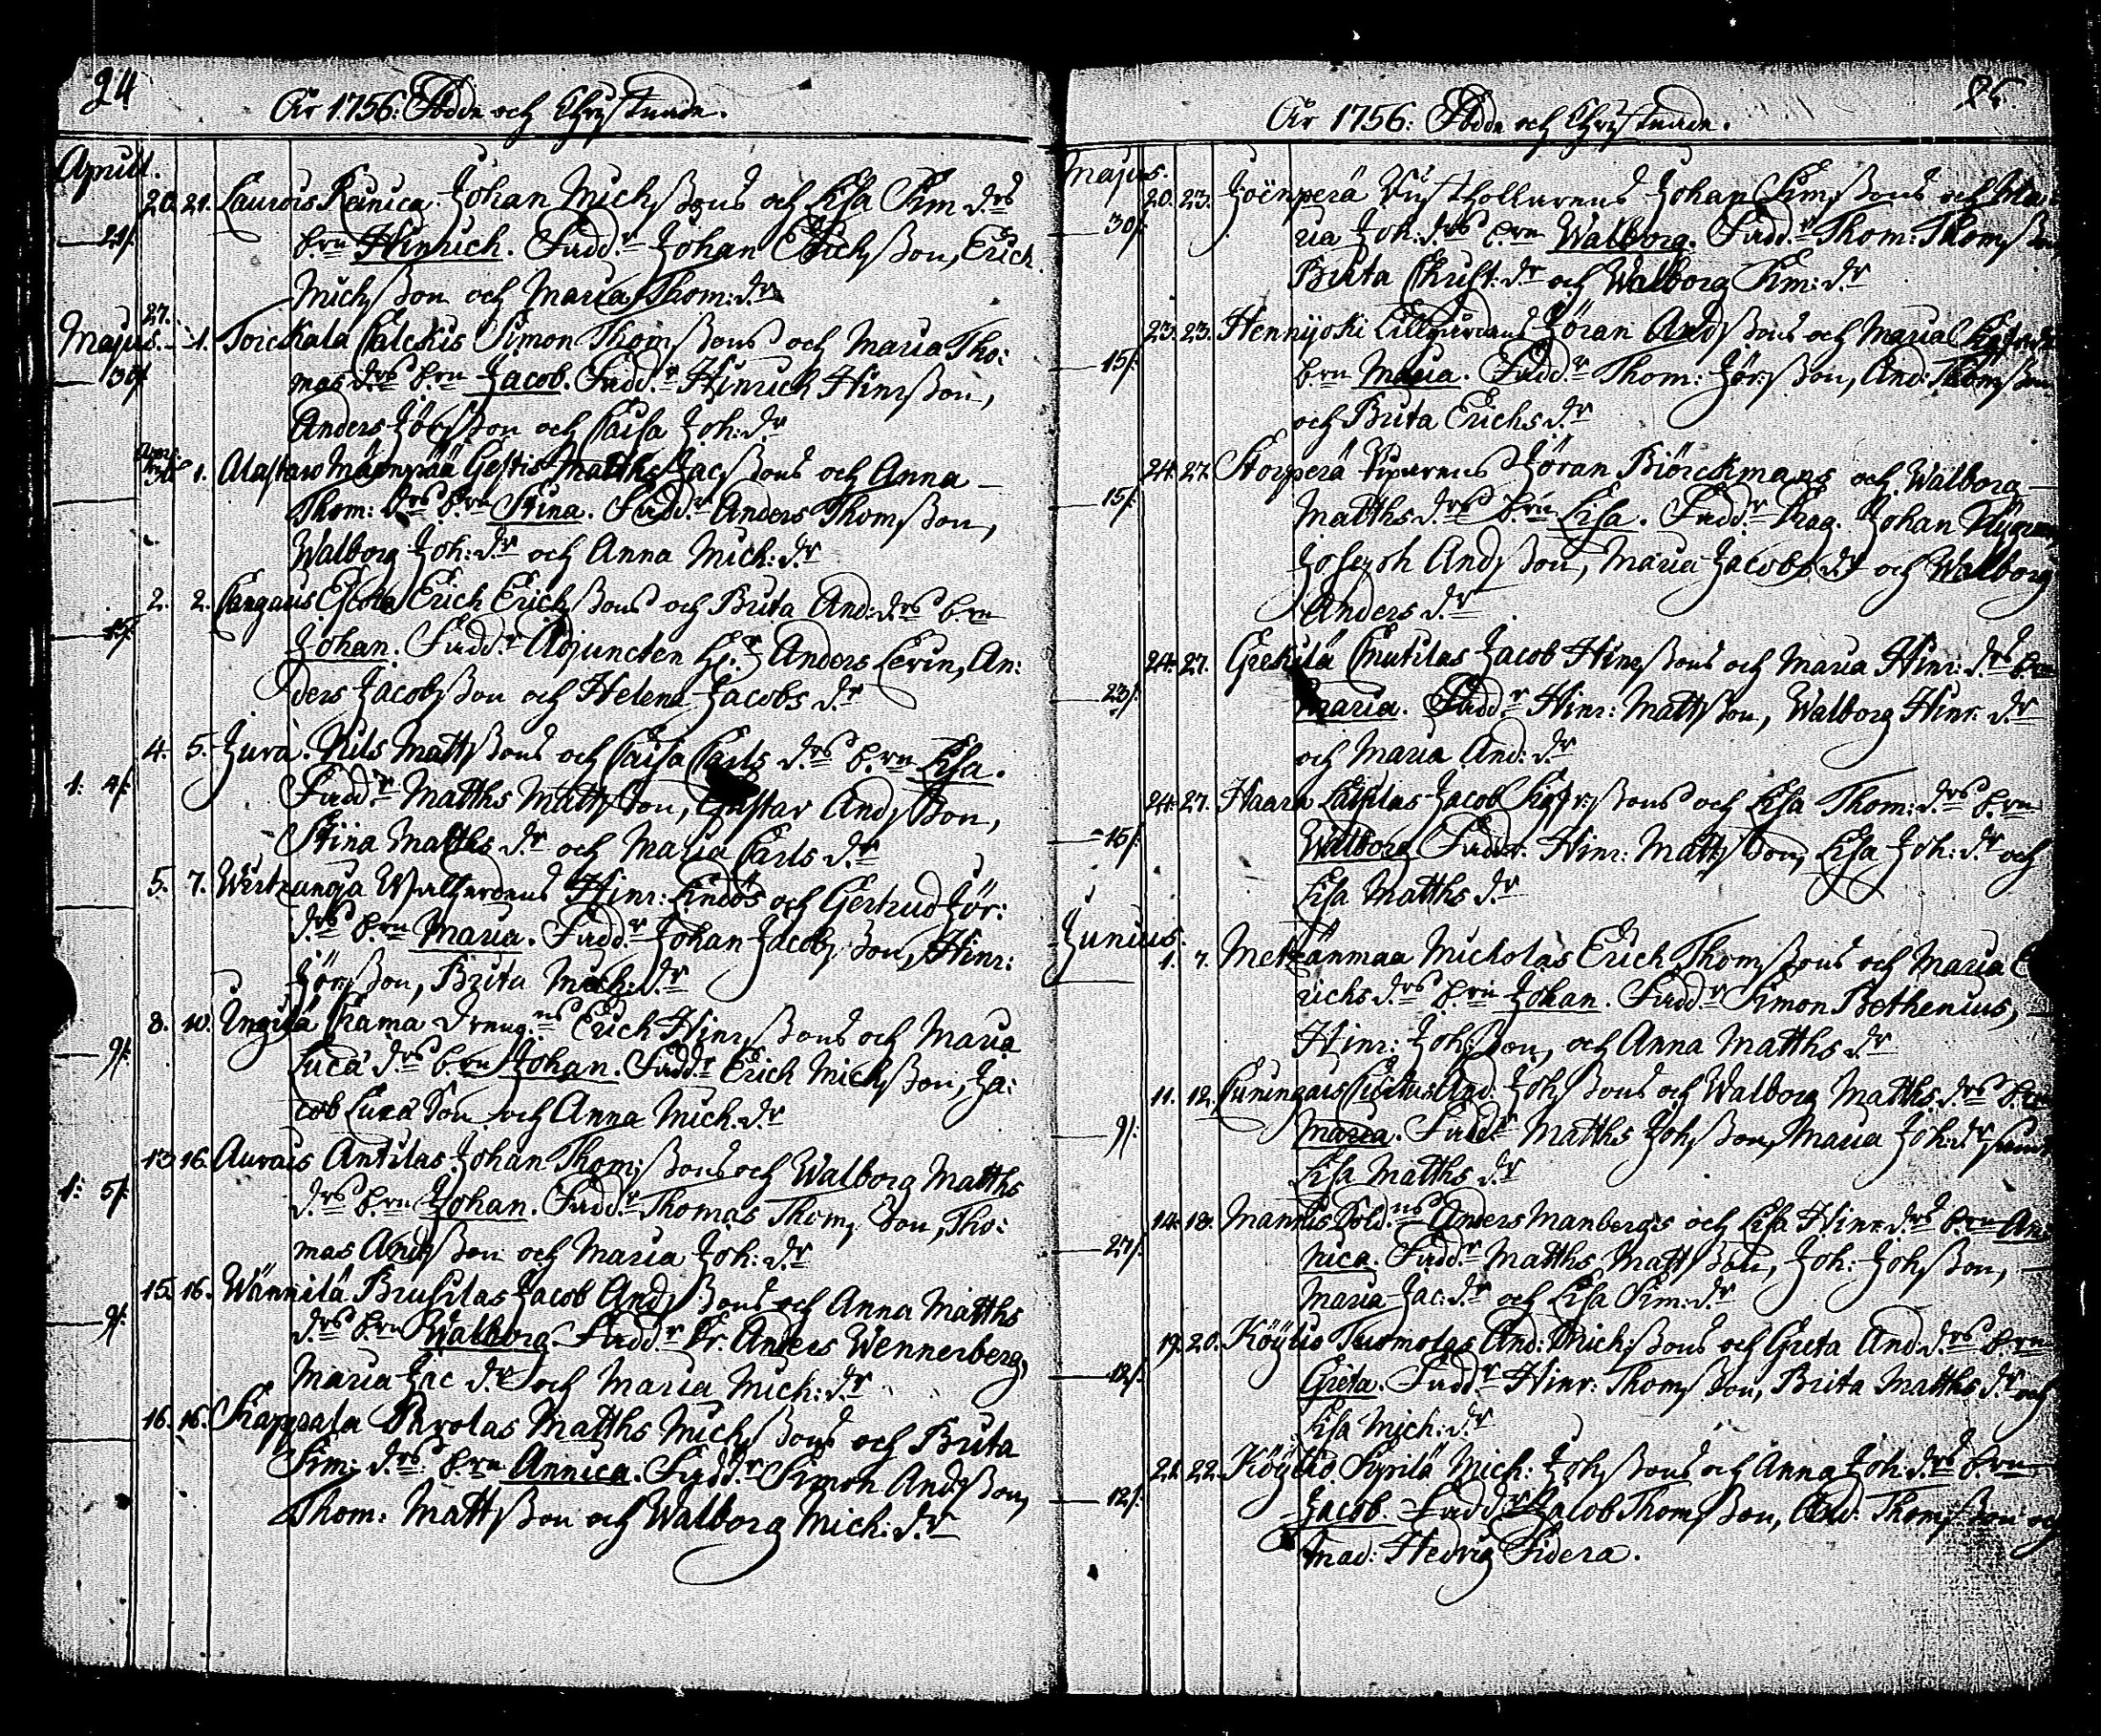 24
År 1756: Födde och Chrystnade.
Aprill.
20. 21. Laurois Reinica Johan Michssons och Lisa Sim d:rs
21/. b:rn Hinrich. Fadd:r Johan Erichsson, Erich
Michsson och Maria Thom: d:r
27.
Majus. 1. Torckala Calckis Simon Thomssons och Maria Tho:
30/. mas d:rs b:rn Jacob. Fadd:r Hinrich Hinrsson,
Anders Jörsson och Caisa Joh: d:r
30 1. Alastaro Mäenpää Gestis Matths Jacssons och Anna
Thom: d:rs b:rn Stina. Fadd:r Anders Thomsson,
Walborg Joh: d:r och Anna Mich: d:r
2. 2. Cangais Erich Erichssons och Brita And: d:rs b:rn
Johan. Fadd:r Adjuncten H:r Anders Levin, An:
ders Jacobsson och Helena Jacobs d:r
4. 5. Juva. Nils Mattssons och Caisa Carls d:rs b:rn Lisa.
1: 4/. Fadd:r Matths Mattsson, Gustav Andsson,
Stina Matths d:r och Maria Carls d:r
5. 7. Wirtzanoja Hinr: Lindös och Gertrud Jör:
d:rs b:rn Maria. Fadd:r Johan Jacobsson, Hinr:
Jörsson, Brita Mich: d:r
8. 10. Ungilä Crama Dreng:ns Erich Hinrssons och Maria
9/. Lucä d:rs b:rn Johan. Fadd:r Erich Michsson, Ja:
cob Lucä Son och Anna Mich: d:r
13. 16. Aurais Antilas Johan Thomssons och Walborg Matths
1: 5/. d:rs b:rn Johan. Fadd:r Thomas Thomsson, Tho:
mas Andsson och Maria Joh: d:r
15. 16. Wännilä Brusilas Jacob Andssons och Anna Matths
9/. d:rs b:rn Walborg. Fadd:r Anders Wennerberg,
Maria Jac d:r och Maria Mich: d:r
16. 16. Kappala Pavolas Matths Michssons och Brita
Sim: d:rs b:rn Annica. Fadd:r Simon Andsson,
Thom: Mattsson och Walborg Mich: d:r
År 1756: Födde och Chrystnade.
Majus.
20. 23. Joenperä Rusthollarens Johan Simssons och Ma:
30/. ria Joh: d:rs b:rn Walborg. Fadd:r Thom: Thomsson
Brita Christ: d:r och Walborg Sim: d:r
23. 23. Hennijoki Jöran Andssons och Maria
15/. b:rn Maria. Fadd:r Thom: Jör:sson, And: Thomsson
och Brita Erichs d:r
24. 27. Storperä Jöran Biörckmans och Walborg
15/. Matths d:rs b:rn Lisa. Fadd:r Johan
Joseph Andsson, Maria Jacobs d:r och Walborg
Anders d:r
24. 27. Greckilä Cnutilas Jacob Hinrssons och Maria Hinr: d:rs b:rn
23/. Maria. Fadd:r Hinr: Mattsson, Walborg Hinr: d:r
och Maria And: d:r
24. 27. Haara Jacob Sigfrssons och Lisa Thom: d:rs b:rn
15/. Walborg Fadd:r Hinr: Mattsson, Lisa Joh: d:r och
Lisa Matths d:r
Junius.
1. 7. Metzänmaa Micholas Erich Thomssons och Maria E
richs d:rs b:rn Johan. Fadd:r Simon Bethenius,
Hinr: Johsson, och Anna Matths d:r
11. 12. And: Johssons och Walborg Matths d:rs b:rn
9/. Maria. Fadd:r Matths Johsson, Maria Joh: d:r samt
Lisa Matths d:r
14. 18. Mannis Sold:ns Anders Manbergs och Lisa Hinr d:rs b:rn An:
27/. nica. Fadd:r Matths Mattsson, Joh: Johsson,
Maria Jac: d:r och Lisa Sim: d:r
19. 20. Köyliö Tuomolas And: Michssons och Greta And: d:rs b:rn
12/. Greta. Fadd:r Hinr: Thomsson, Brita Matths d:r och
Lisa Mich: d:r
21. 22. Köyliö Sipilä Mich: Johssons och Anna Joh: d:rs b:rn
12/. Jacob. Fadd:r Jacob Thomsson, And: Thomsson och
Mad: Hedvig Sidera.